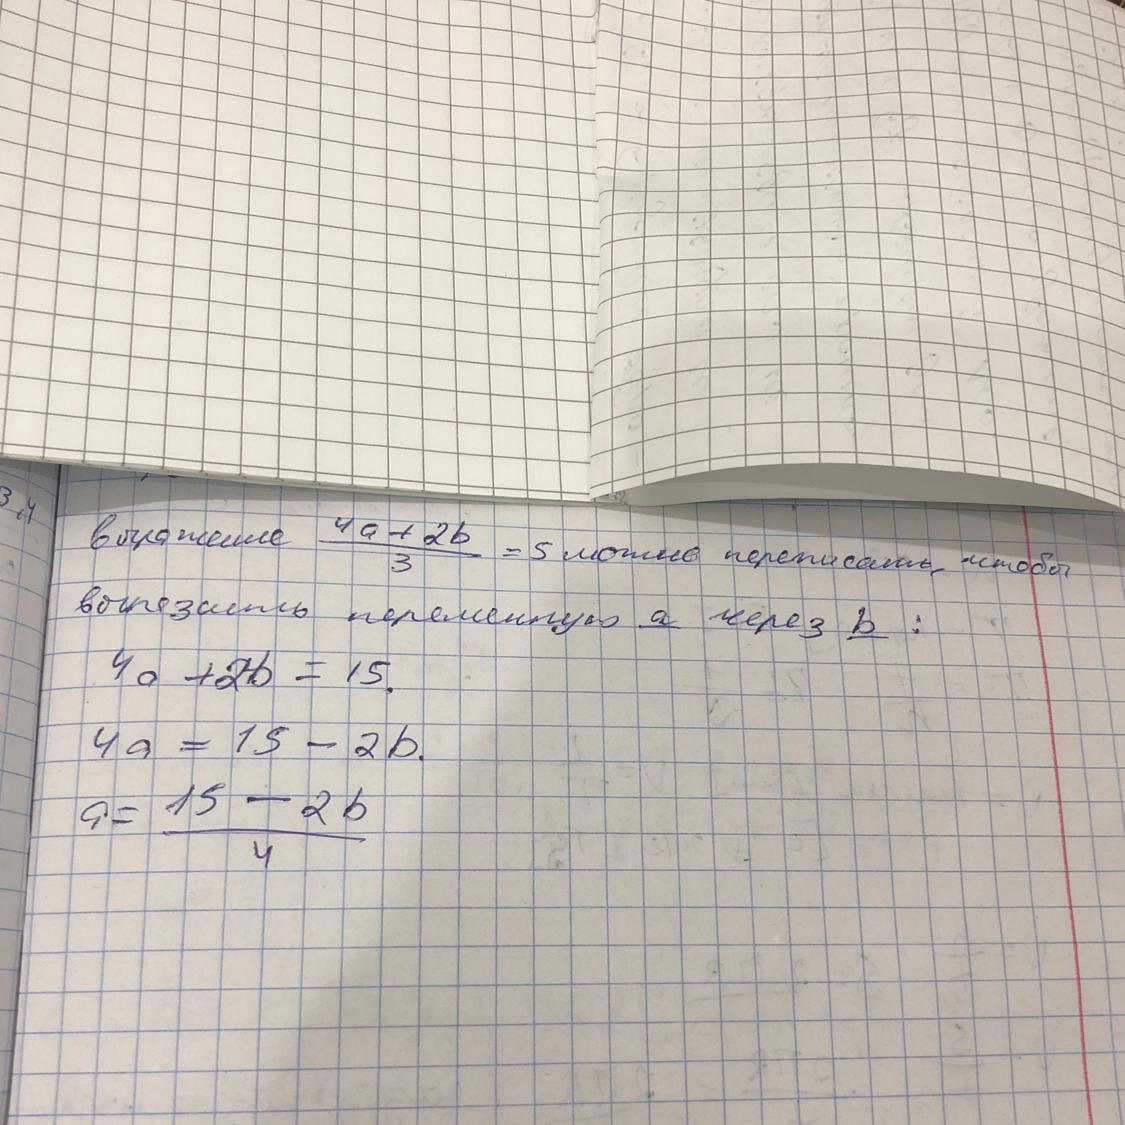 3,4
выражение \frac{4a+2b}{3} = 5 можно переписать, чтобы
выразить переменную a через b :
4a + 2b = 15.
4a = 15 - 2b.
a = \frac{15 - 2b}{4}